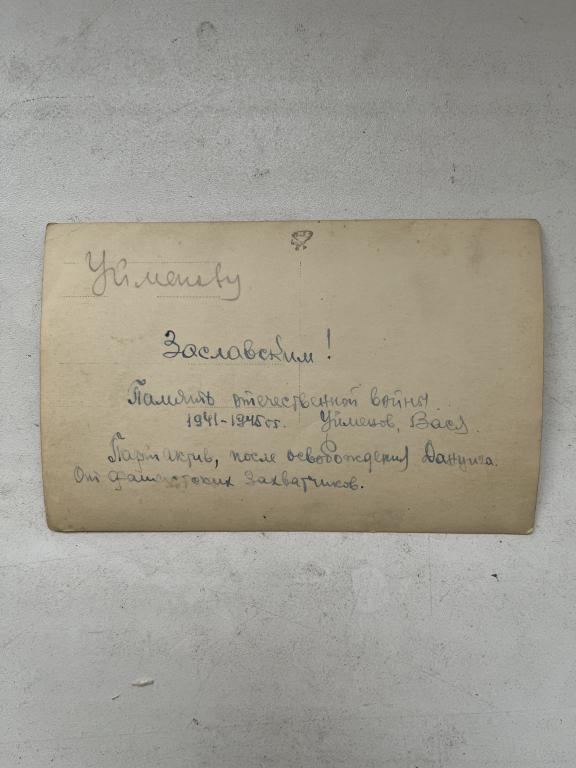 Уйменову
Заславским!
Память отечественной войны
1941-1945 гг. Уйменов, Вася.
Партактив, после освобождения Данцига.
От фашистских захватчиков.